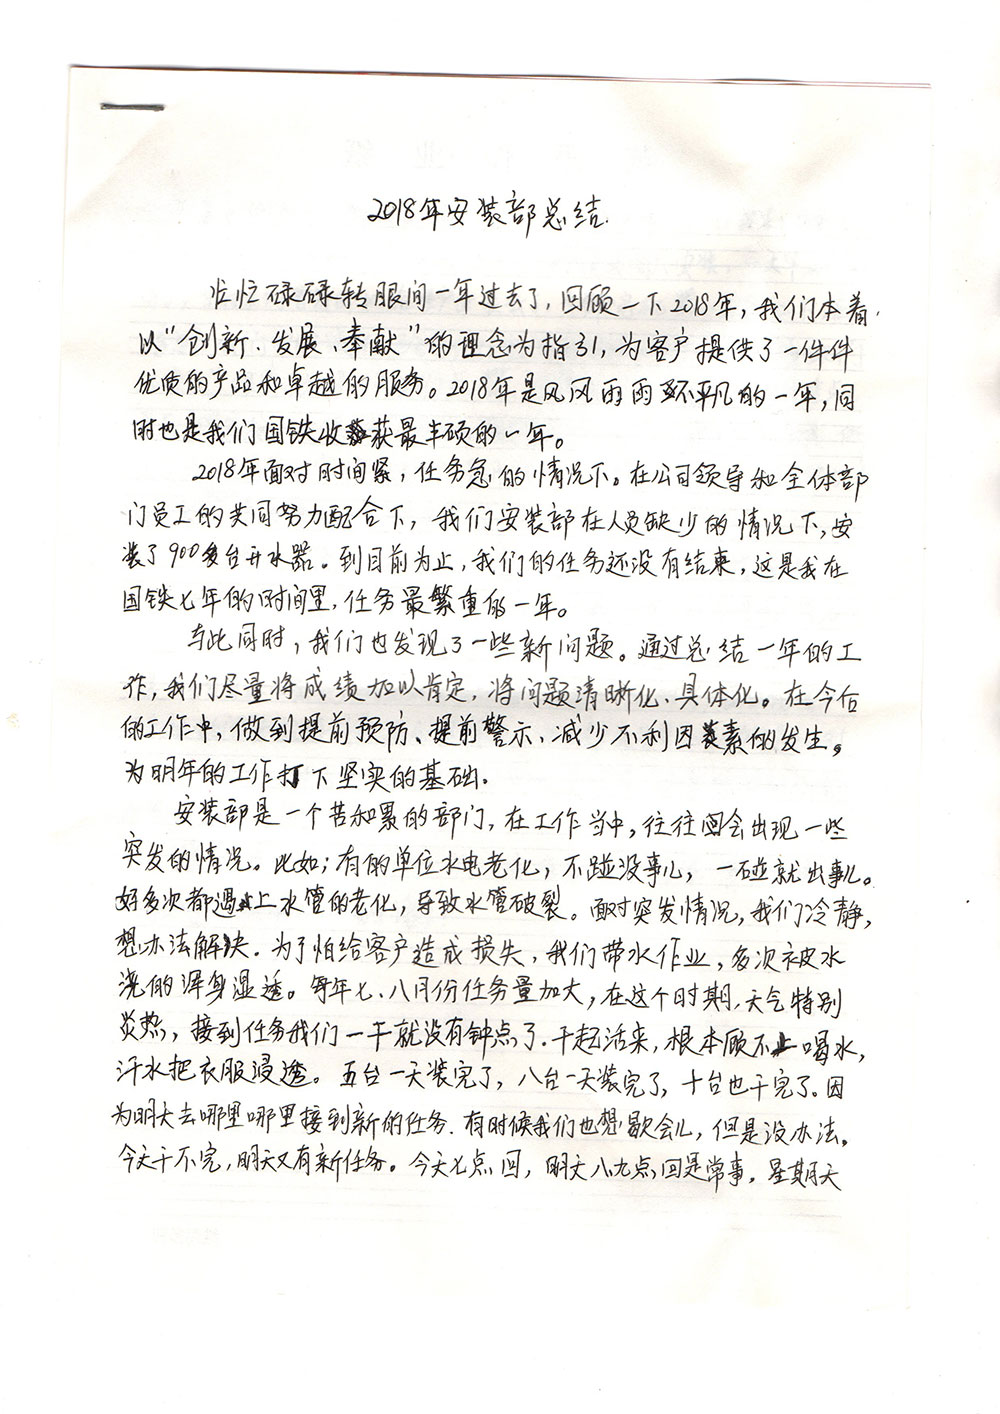 2018年安装部总结.
忙忙碌碌转眼间一年过去了，回顾一下2018年，我们本着
以"创新、发展、奉献"的理念为指引，为客户提供了一件件
优质的产品和卓越的服务。2018年是风风雨雨不平凡的一年，同
时也是我们国铁收获最丰硕的一年。
2018年面对时间紧，任务急的情况下。在公司领导和全体部
门员工的共同努力配合下，我们安装部在人员缺少的情况下，安
装了900多台开水器。到目前为止，我们的任务还没有结束，这是我在
国铁七年的时间里，任务最繁重的一年。
与此同时，我们也发现了一些新问题。通过总结一年的工
作，我们尽量将成绩加以肯定，将问题清晰化、具体化。在今后
的工作中，做到提前预防、提前警示、减少不利因素的发生。
为明年的工作打下坚实的基础.
安装部是一个苦和累的部门，在工作当中，往往会出现一些
突发的情况。比如；有的单位水电老化，不碰没事儿，一碰就出事儿。
好多次都遇上水管的老化，导致水管破裂。面对突发情况，我们冷静，
想办法解决．为了怕给客户造成损失，我们带水作业，多次被水
浇的浑身湿透。每年七、八月份任务量加大，在这个时期，天气特别
炎热，接到任务我们一干就没有钟点了．干起活来，根本顾不上喝水，
汗水把衣服浸透。五台一天装完了，八台一天装完了，十台也干完了。因
为明天去哪里哪里接到新的任务．有时候我们也想歇会儿，但是没办法。
今天干不完，明天又有新任务。今天七点回，明天八九点回是常事。星期天